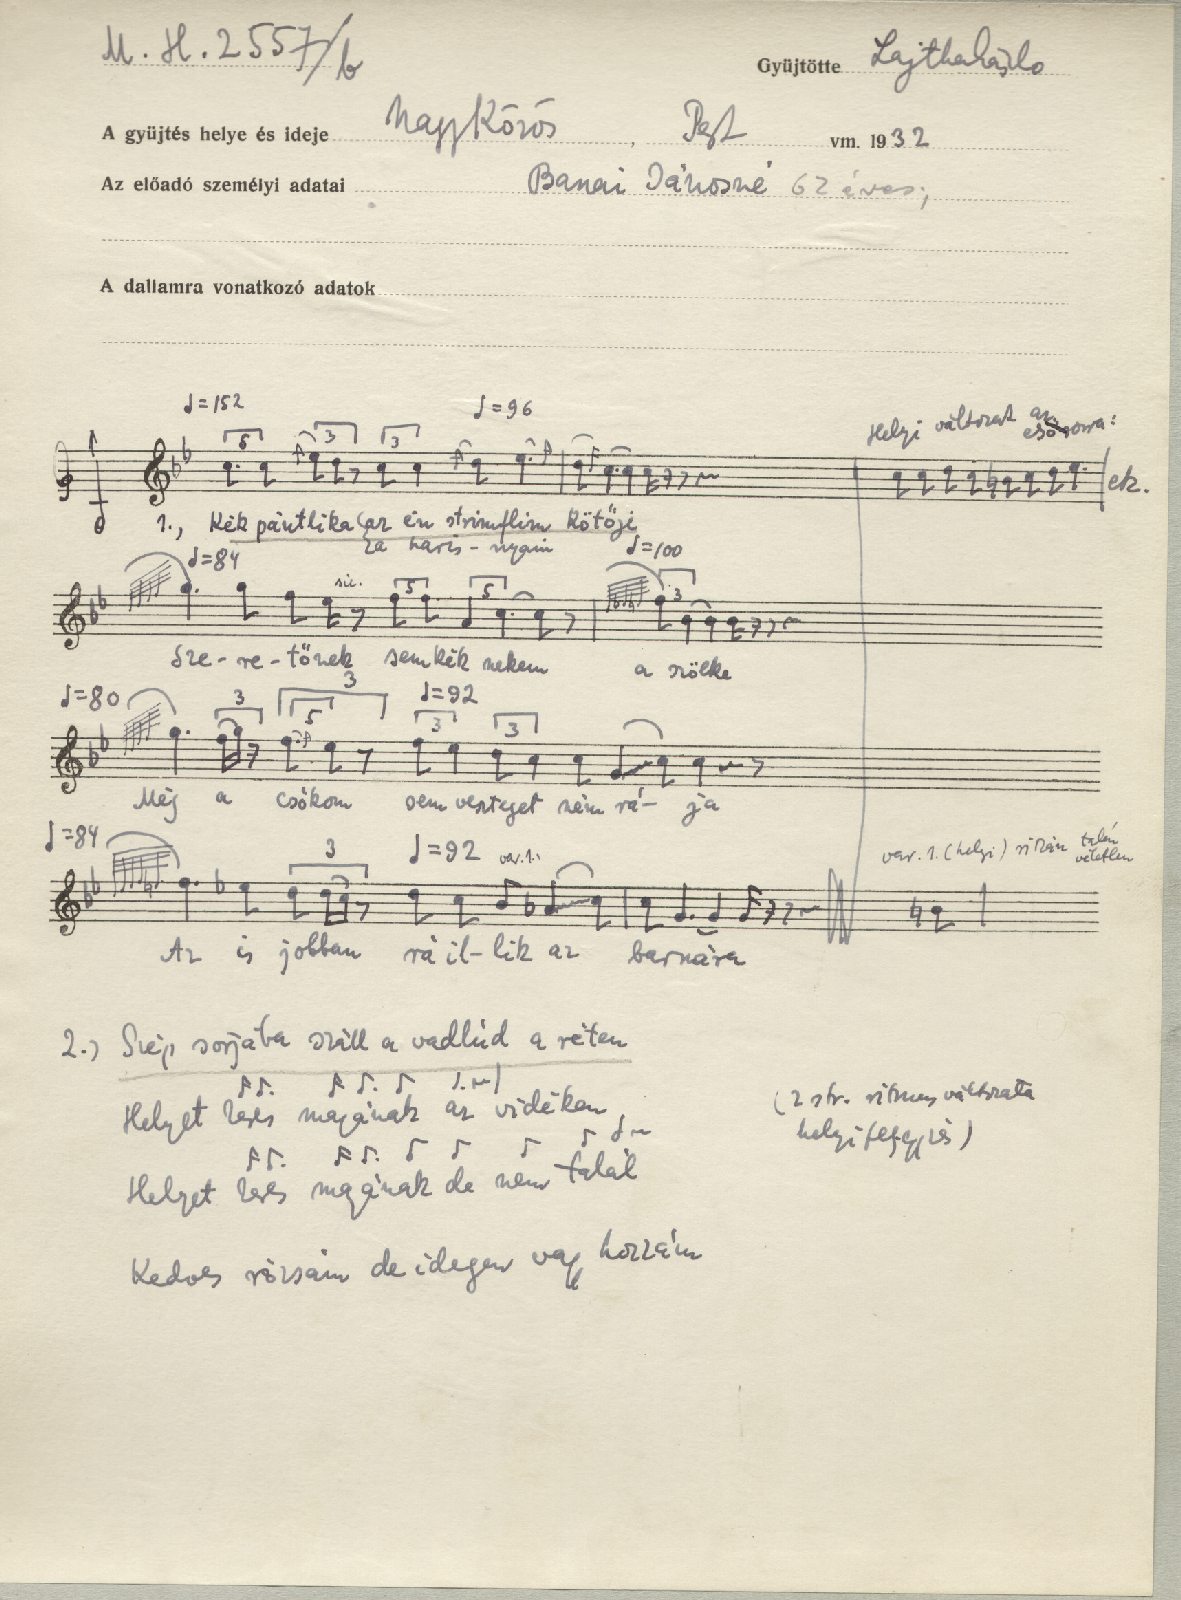 M. H. 2557/b
Gyüjtötte Lajtha László
A gyüjtés helye és ideje Nagykőrös, Pest vm. 1932
Az előadó személyi adatai Banai Jánosné 62 éves,
A dallamra vonatkozó adatok
♩=152 ♩=96 Helyi változat az első sorra:
5 3 3 etc.
1., Kék pántlika (az én strimflim kötője
za haris-nyám
♩=84 sic. 5 5 ♩=100 3
Sze-re-tőnek sem kék nekem a szőke
♩=80 3 5 3 ♩=92 3 3
Még a csókom sem veszteget ném rá-ja
♩=84 3 ♩=92 var.1. var. 1. (helyi) ritkán talán véletlen
Az is jobban rá il-lik az barnára
2.) Szép sorjába száll a vadlúd a réten
Helyet keres magának az vidéken,
(2 str. ritmus változata
helyi feljegyzés)
Helyet keres magának de nem talál
Kedves rózsám de idegen vagy hozzám